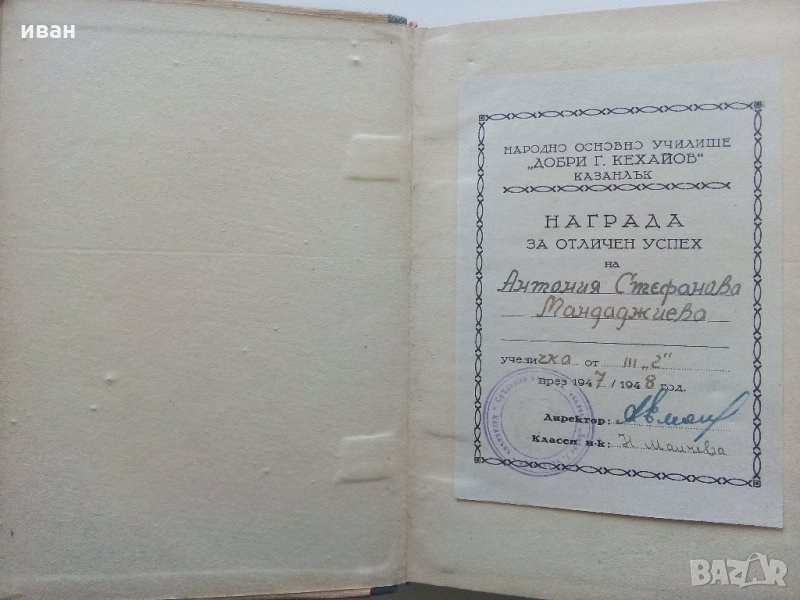 иван
НАРОДНО ОСНОВНО УЧИЛИЩЕ
„ДОБРИ Г. КЕХАЙОВ“
КАЗАНЛЪК
НАГРАДА
ЗА ОТЛИЧЕН УСПЕХ
на
Антония Стефанова
Мандаджиева
ученичка от III „г“
през 1947/1948 год.
Директор:
Класен н-к: Н
BAZAR